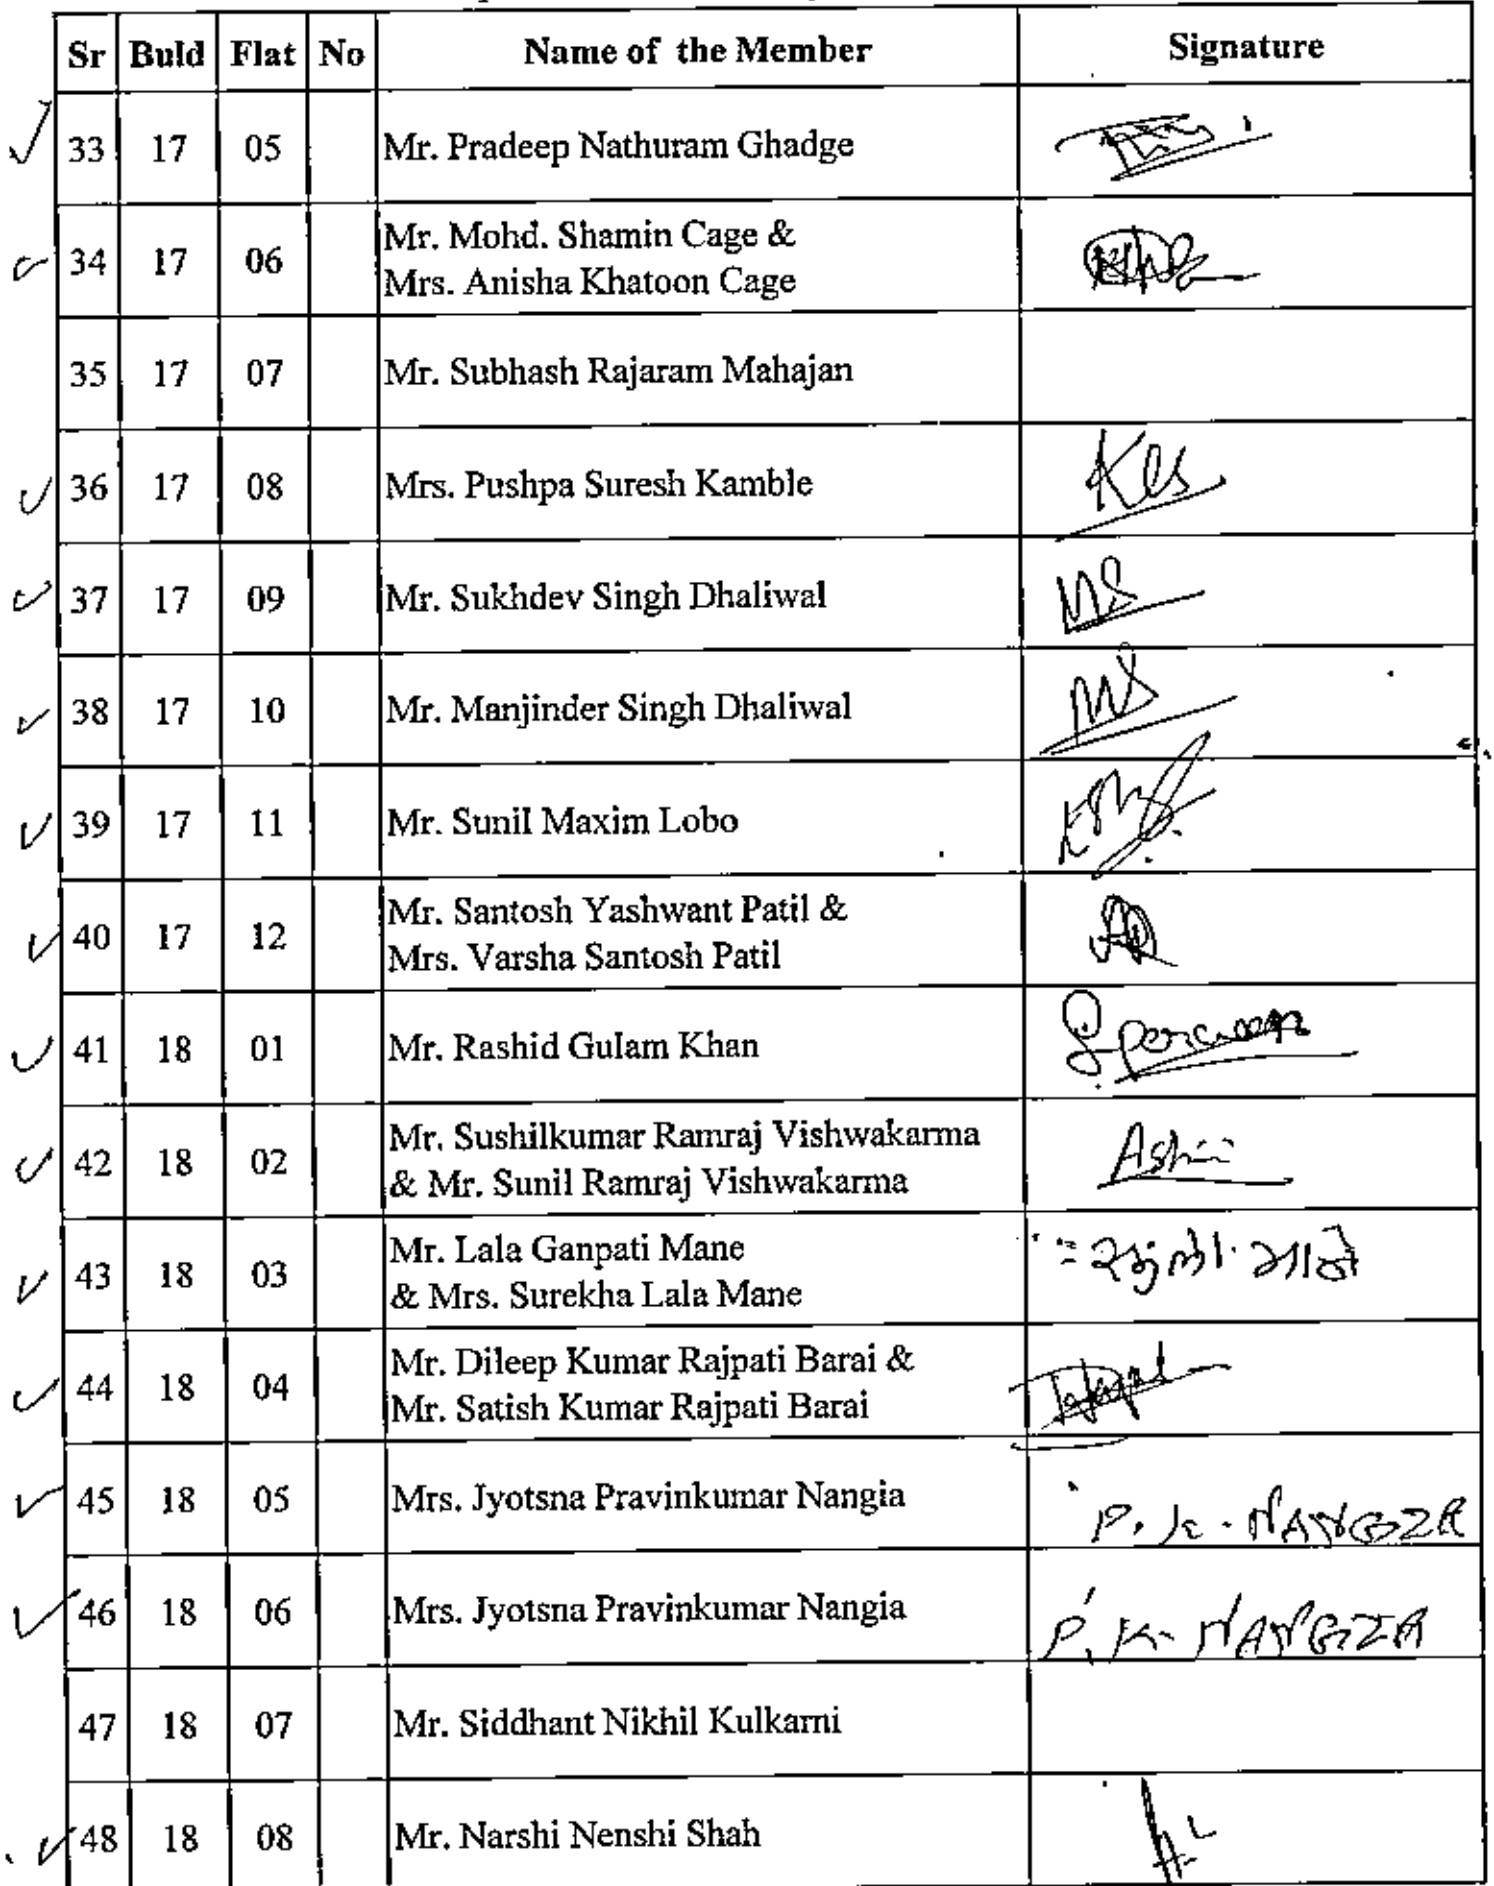 Sr Buld Flat No Name of the Member Signature
33 17 05 Mr. Pradeep Nathuram Ghadge
34 17 06 Mr. Mohd. Shamin Cage &
Mrs. Anisha Khatoon Cage
35 17 07 Mr. Subhash Rajaram Mahajan
36 17 08 Mrs. Pushpa Suresh Kamble
37 17 09 Mr. Sukhdev Singh Dhaliwal
38 17 10 Mr. Manjinder Singh Dhaliwal
39 17 11 Mr. Sunil Maxim Lobo
40 17 12 Mr. Santosh Yashwant Patil &
Mrs. Varsha Santosh Patil
41 18 01 Mr. Rashid Gulam Khan
42 18 02 Mr. Sushilkumar Ramraj Vishwakarma
& Mr. Sunil Ramraj Vishwakarma
43 18 03 Mr. Lala Ganpati Mane
& Mrs. Surekha Lala Mane
44 18 04 Mr. Dileep Kumar Rajpati Barai &
Mr. Satish Kumar Rajpati Barai
45 18 05 Mrs. Jyotsna Pravinkumar Nangia P. K. NANGIA
46 18 06 Mrs. Jyotsna Pravinkumar Nangia P. K. NANGIA
47 18 07 Mr. Siddhant Nikhil Kulkarni
48 18 08 Mr. Narshi Nenshi Shah